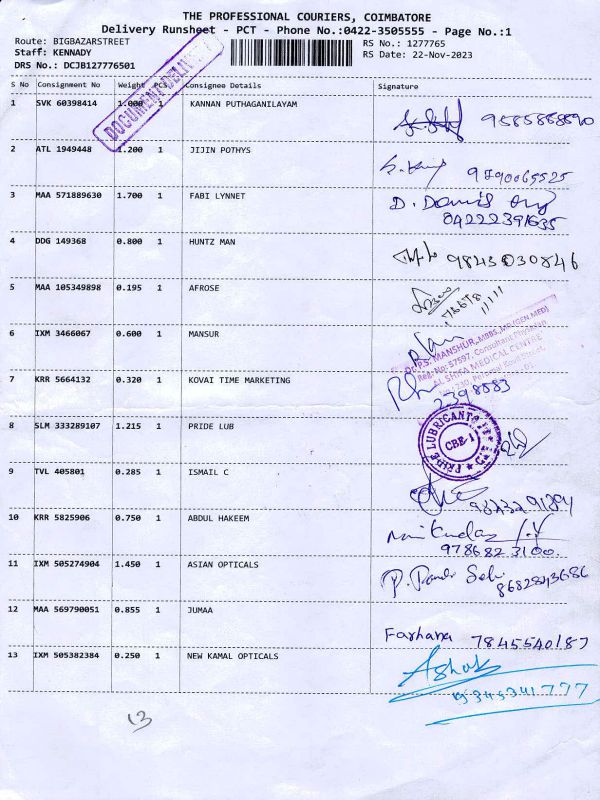 THE PROFESSIONAL COURIERS, COIMBATORE
Delivery Runsheet - PCT - Phone No.:0422-3505555 - Page No.:1
Route: BIGBAZARSTREET RS No.: 1277765
Staff: KENNADY RS Date: 22-Nov-2023
DRS No.: DCJB127776501
DOCUMENT DELIVERY
S No Consignment No Weight PCS Consignee Details Signature
1 SVK 60398414 1.000 1 KANNAN PUTHAGANILAYAM
2 ATL 1949448 1.200 1 JIJIN POTHYS
9790065525
3 MAA 571889630 1.700 1 FABI LYNNET
04222391635
4 DDG 149368 0.800 1 HUNTZ MAN
9843030846
5 MAA 105349898 0.195 1 AFROSE
6 IXM 3466067 0.600 1 MANSUR
DR. S. MANSHUR, MBBS, MD (GEN.MED)
Reg. No: 57597, Consultant Physician
AL SHIFA MEDICAL CENTRE
7 KRR 5664132 0.320 1 KOVAI TIME MARKETING
2398583
8 SLM 333289107 1.215 1 PRIDE LUB
PRIDE LUBRICANTS
CBE-1
9 TVL 405801 0.285 1 ISMAIL C
10 KRR 5825906 0.750 1 ABDUL HAKEEM
9786823100
11 IXM 505274904 1.450 1 ASIAN OPTICALS
12 MAA 569790051 0.855 1 JUMAA
Farhana 7845540187
13 IXM 505382384 0.250 1 NEW KAMAL OPTICALS
Ashok
9345341777
13